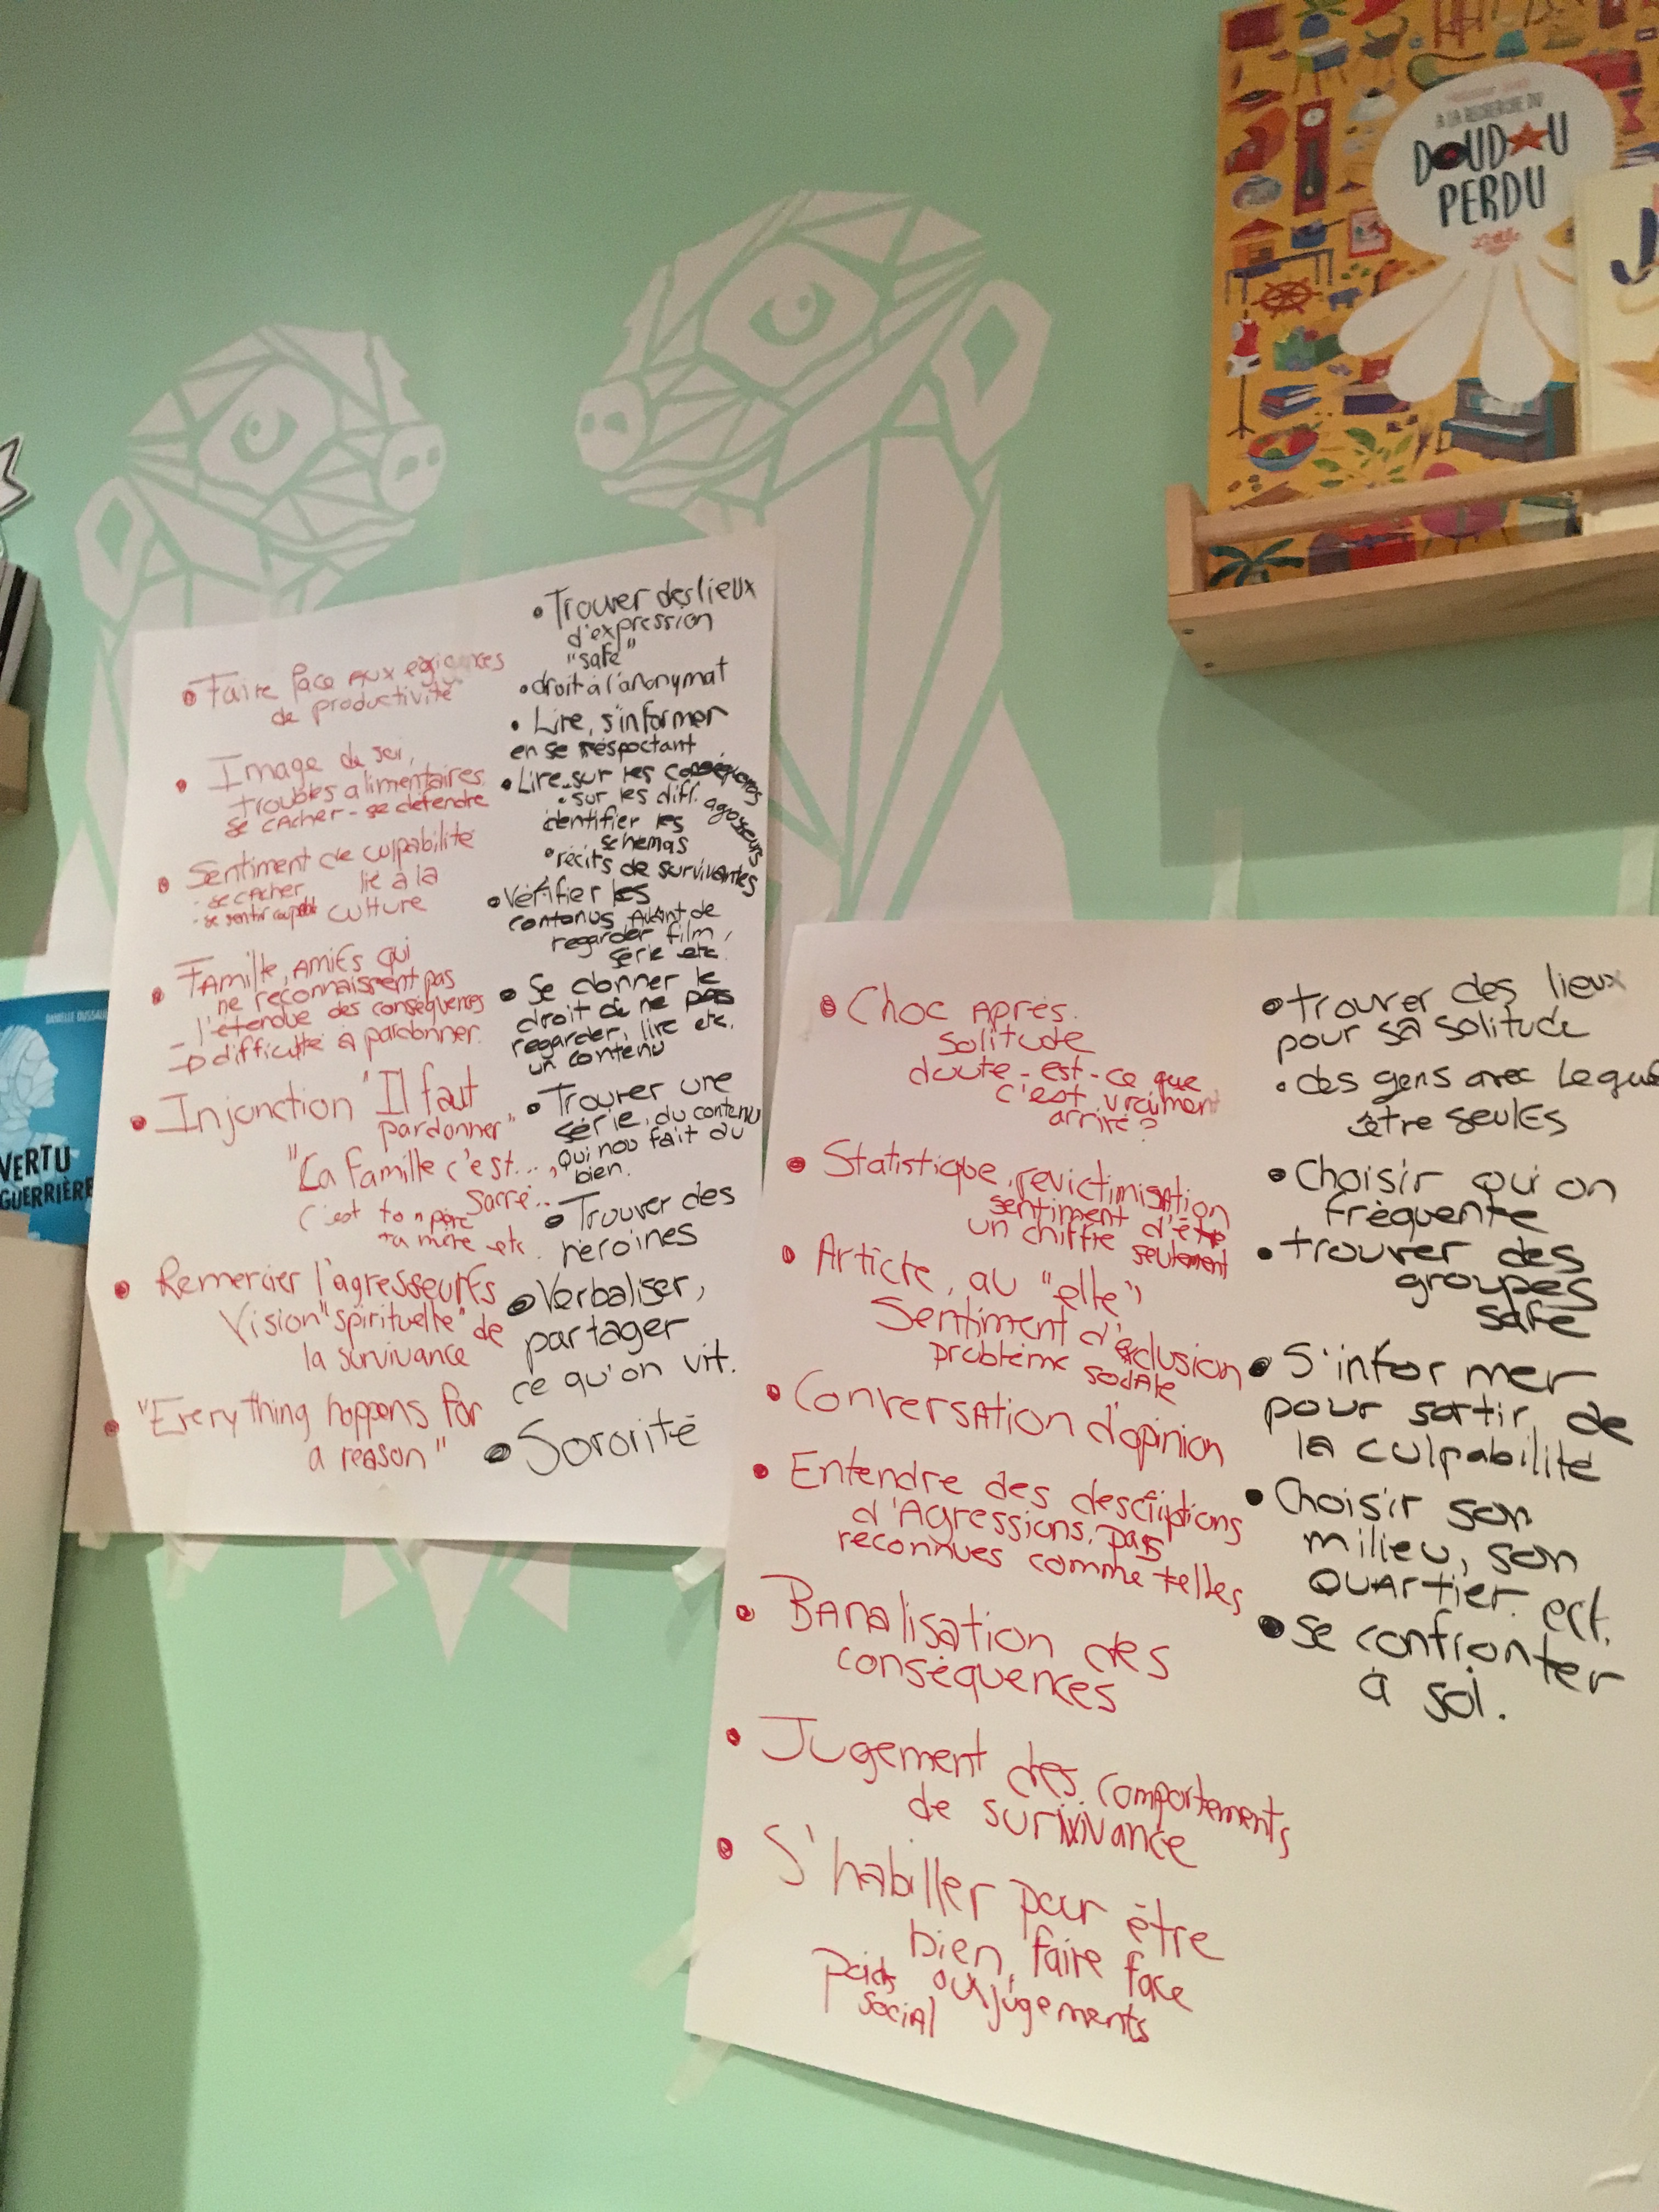 À LA RECHERCHE DU
DOUDOU
PERDU
J
DANIELLE DUSSAU
VERTU
GUERRIÈRE
• Faire face aux exigences
de productivité
• Image de soi,
troubles alimentaires.
se cacher - se défendre
• Sentiment de culpabilité
- se cacher lié à la
- se sentir coupable culture
• Famille, amiEs qui
ne reconnaissent pas
l'étendue des conséquences
→ difficulté à pardonner.
• Injonction "Il faut
pardonner"
"La famille c'est...
sacré..
C'est ton père
ta mère etc.
• Remercier l'agresseurEs
Vision "spirituelle" de
la survivance
• "Everything happens for
a reason"
• Trouver des lieux
d'expression
"safe"
• droit à l'anonymat
• Lire, s'informer
en se respectant
• Lire sur les conséquences
• sur les diff. agresseurs
identifier les
schémas
• récits de survivantes
• Vérifier les
contenus avant de
regarder film,
série etc.
• Se donner le
droit de ne pas
regarder, lire etc.
un contenu
• Trouver une
série, du contenu
qui nous fait du
bien.
• Trouver des
héroïnes
• Verbaliser,
partager
ce qu'on vit.
• Sororité
• Choc après.
solitude
doute - est-ce que
c'est vraiment
arrivé?
• Statistique, revictimisation
sentiment d'être
un chiffre seulement
• Article, au "elle"
Sentiment d'exclusion
problème sociale
• Conversation d'opinion
• Entendre des descriptions
d'Agressions, pas
reconnues comme telles
• Banalisation des
conséquences
• Jugement des comportements
de survivance
• S'habiller pour être
bien, faire face
poids aux jugements
social
• trouver des lieux
pour sa solitude
• des gens avec lequel
être seulEs
• Choisir qui on
fréquente
• trouver des
groupes
safe
• S'informer
pour sortir de
la culpabilité
• Choisir son
milieu, son
quartier. ect.
• se confronter
à soi.